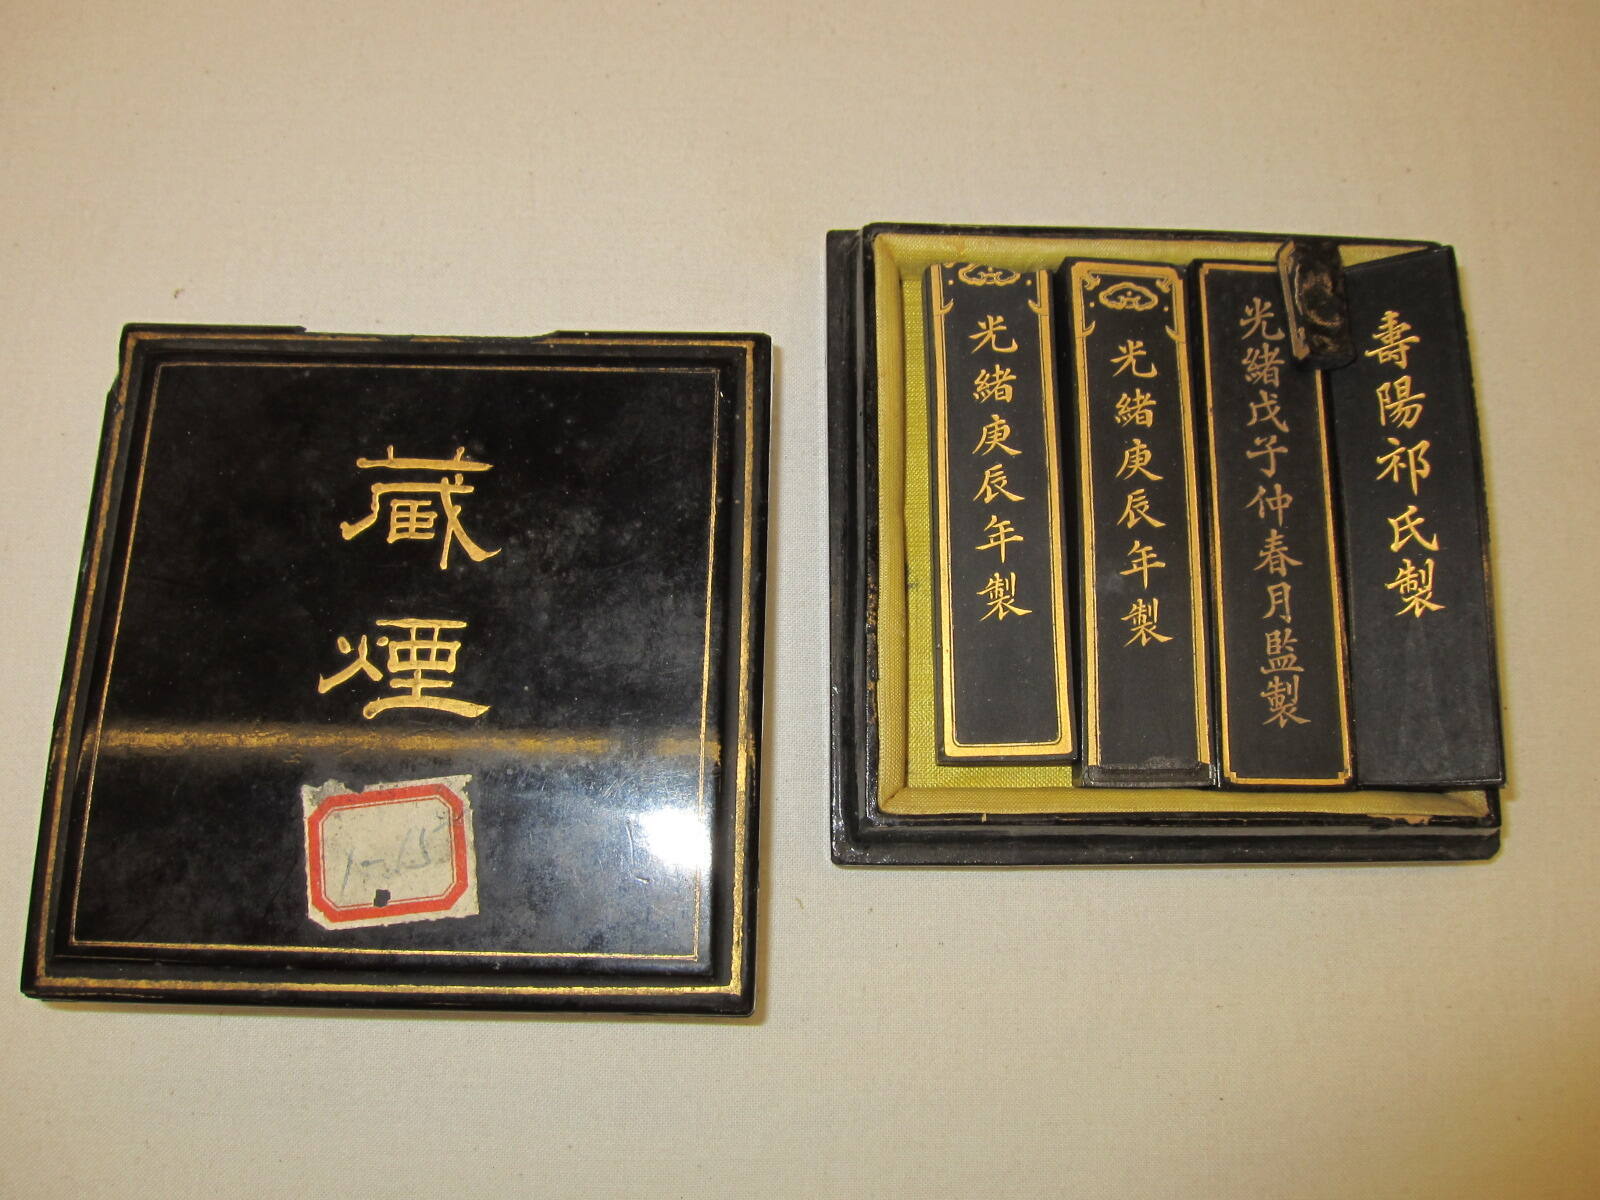 藏煙
光緒庚辰年製
光緒庚辰年製
光緒戊子仲春月監製
壽陽祁氏製